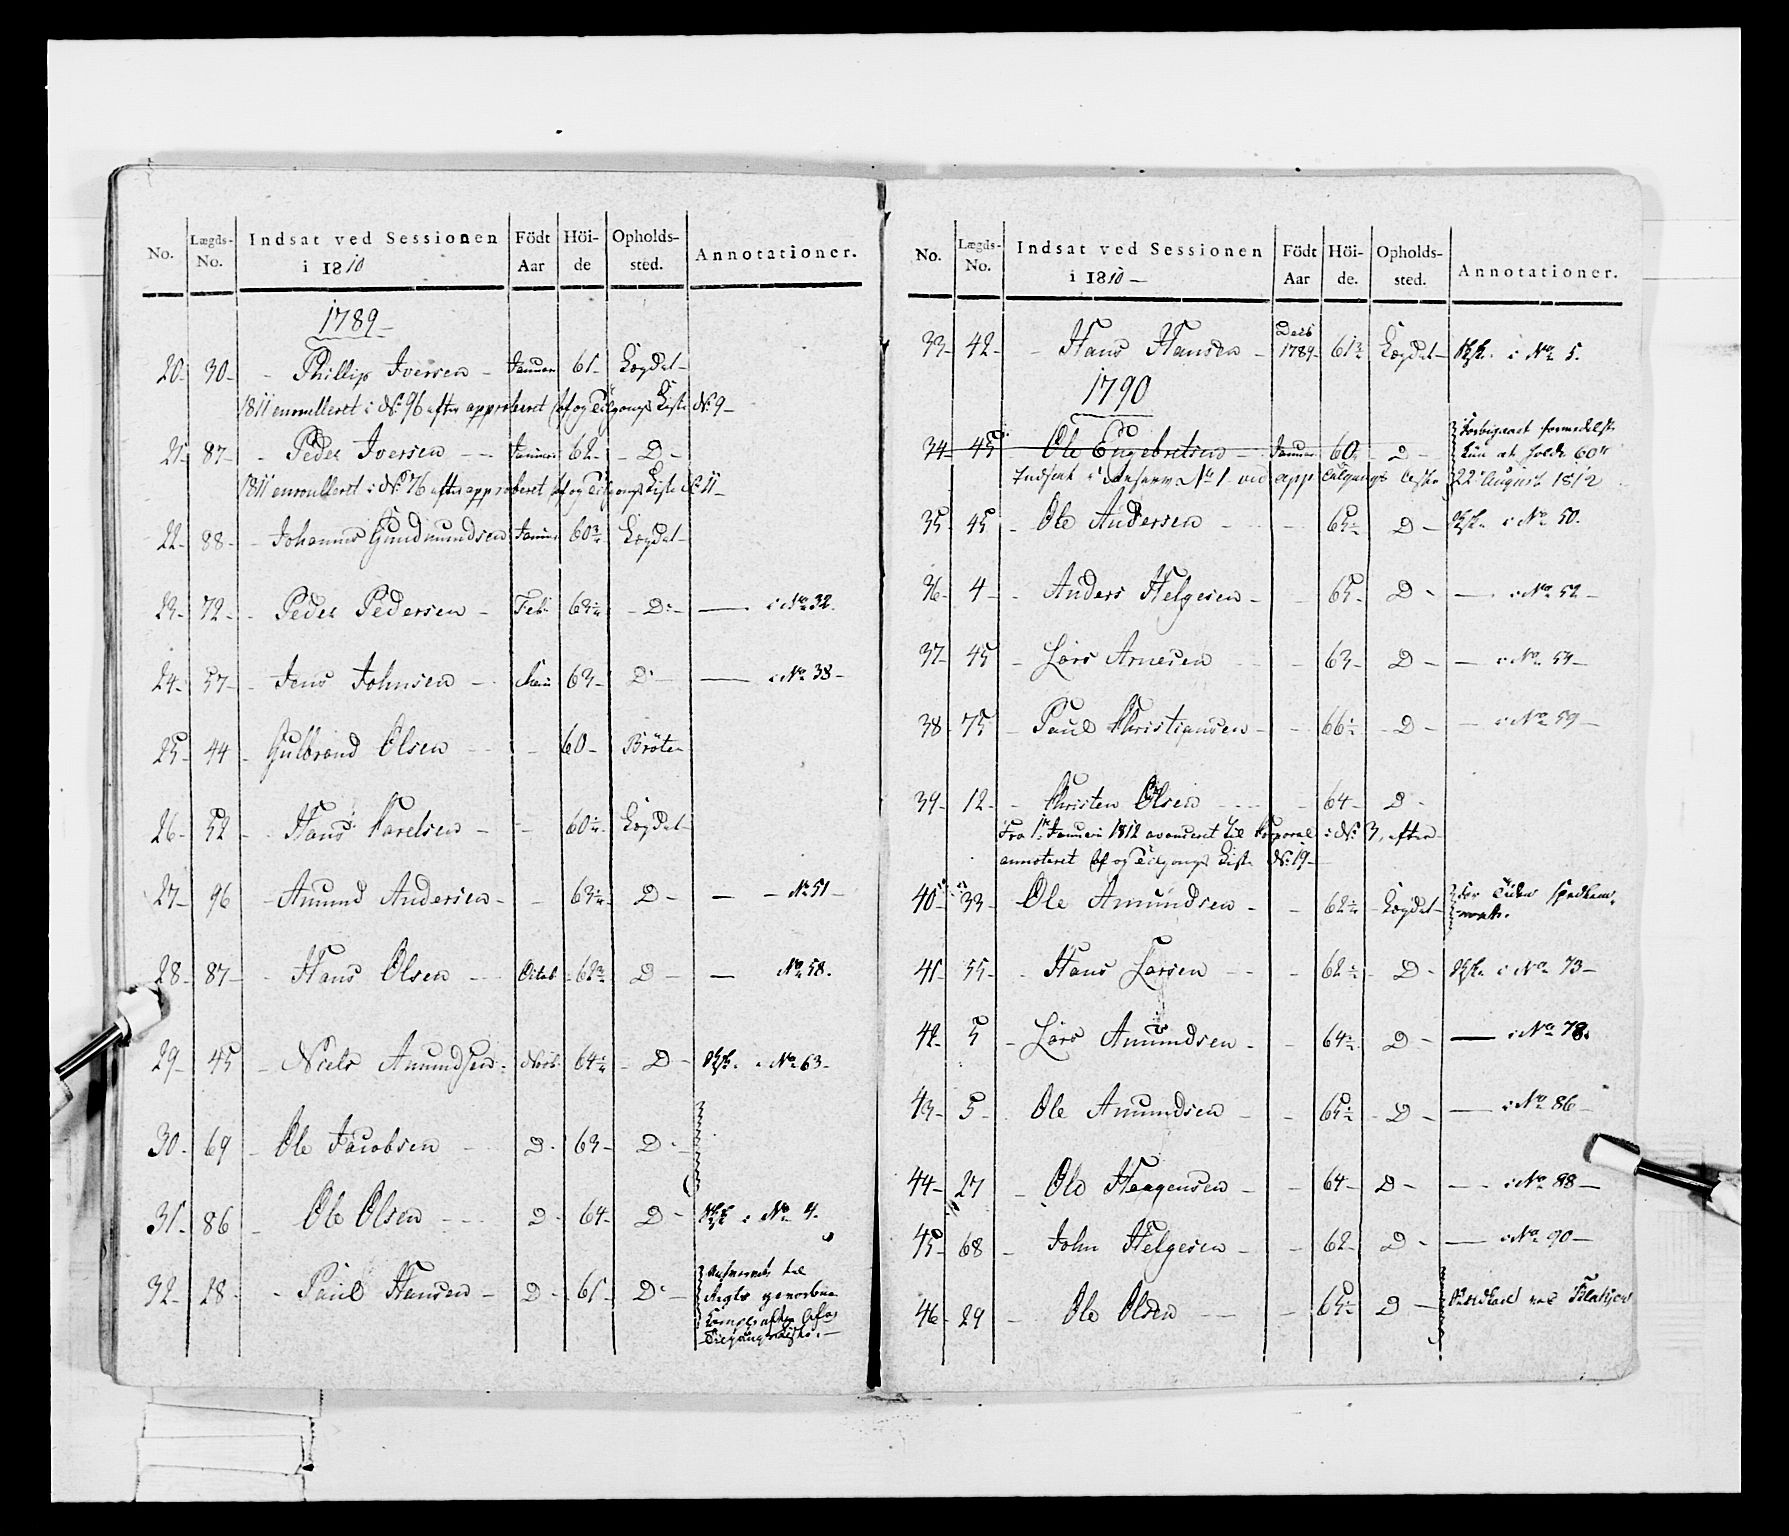 No. Lægds-No. Indsat ved Sessionen i 1810 Födt Aar Höi-de Opholds-sted. Annotationer.
1789
20 30 Phillip Iversen Januar 61 Lægdet
1811 enroulleret i No 96 efter approberet Af og Tilgangs Liste No 9
21 87 Peder Iversen Januar 62 D
1811 enroulleret i No 76 efter approberet Af og Tilgangs Liste No 11
22 88 Johannes Gundmundsen Januar 60 3/4 Lægdet
23 72 Peder Pedersen Feb 63 D i No 32.
24 57 Jens Johnsen 63 D i No 38
25 44 Gulbrand Olsen 60 Bröten
26 52 Hans Karelsen 60 Lægdet
27 96 Amund Andersen 63 D No 51
28 87 Hans Olsen Octob 62 D No 58.
29 45 Niels Amundsen 64 D i No 63
30 69 Ole Jacobsen D 63 D
31 86 Ole Olsen D 64 D i No 4.
32 28 Paul Hansen D 61 D
Tilgangsliste.
No. Lægds-No. Indsat ved Sessionen i 1810 Födt Aar Höi-de. Opholds-sted. Annotationer.
33 42 Hans Hansen Decb 1789 61 Lægdet i No 5.
1790
34 45 Ole Engebretsen Januar 60 D Forbigaaet formedelst kun at holde 60"
Indsat i No 1 ved app Tilgangs Liste 22 August 1812
35 45 Ole Andersen 65 D i No 50.
36 4 Anders Helgesen 65 D i No 52
37 45 Lars Arnesen 63 D i No 54
38 75 Paul Christiansen 66 D i No 59
39 12 Christen Olsen 64 D
Fra 1 Januari 1812 avanceret til Korporal i No 3, efter
annoteret Af og Tilgangs Liste No 19
40 33 Ole Amundsen 62 Lægdet for Tiden
41 55 Hans Larsen 62 D i No 73
42 5 Lars Amundsen 64 D i No 78.
43 5 Ole Amundsen 65 D i No 86
44 27 Ole Haagensen 64 D i No 88
45 68 John Helgesen 62 D i No 90
46 29 Ole Olsen 65 D